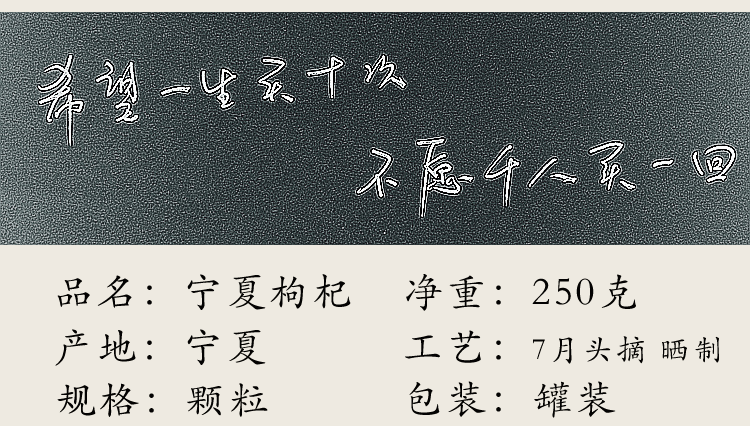 希望一生买十次
不愿千人买一回
品名：宁夏枸杞 净重：250克
产地：宁夏 工艺：7月头摘 晒制
规格：颗粒 包装：罐装